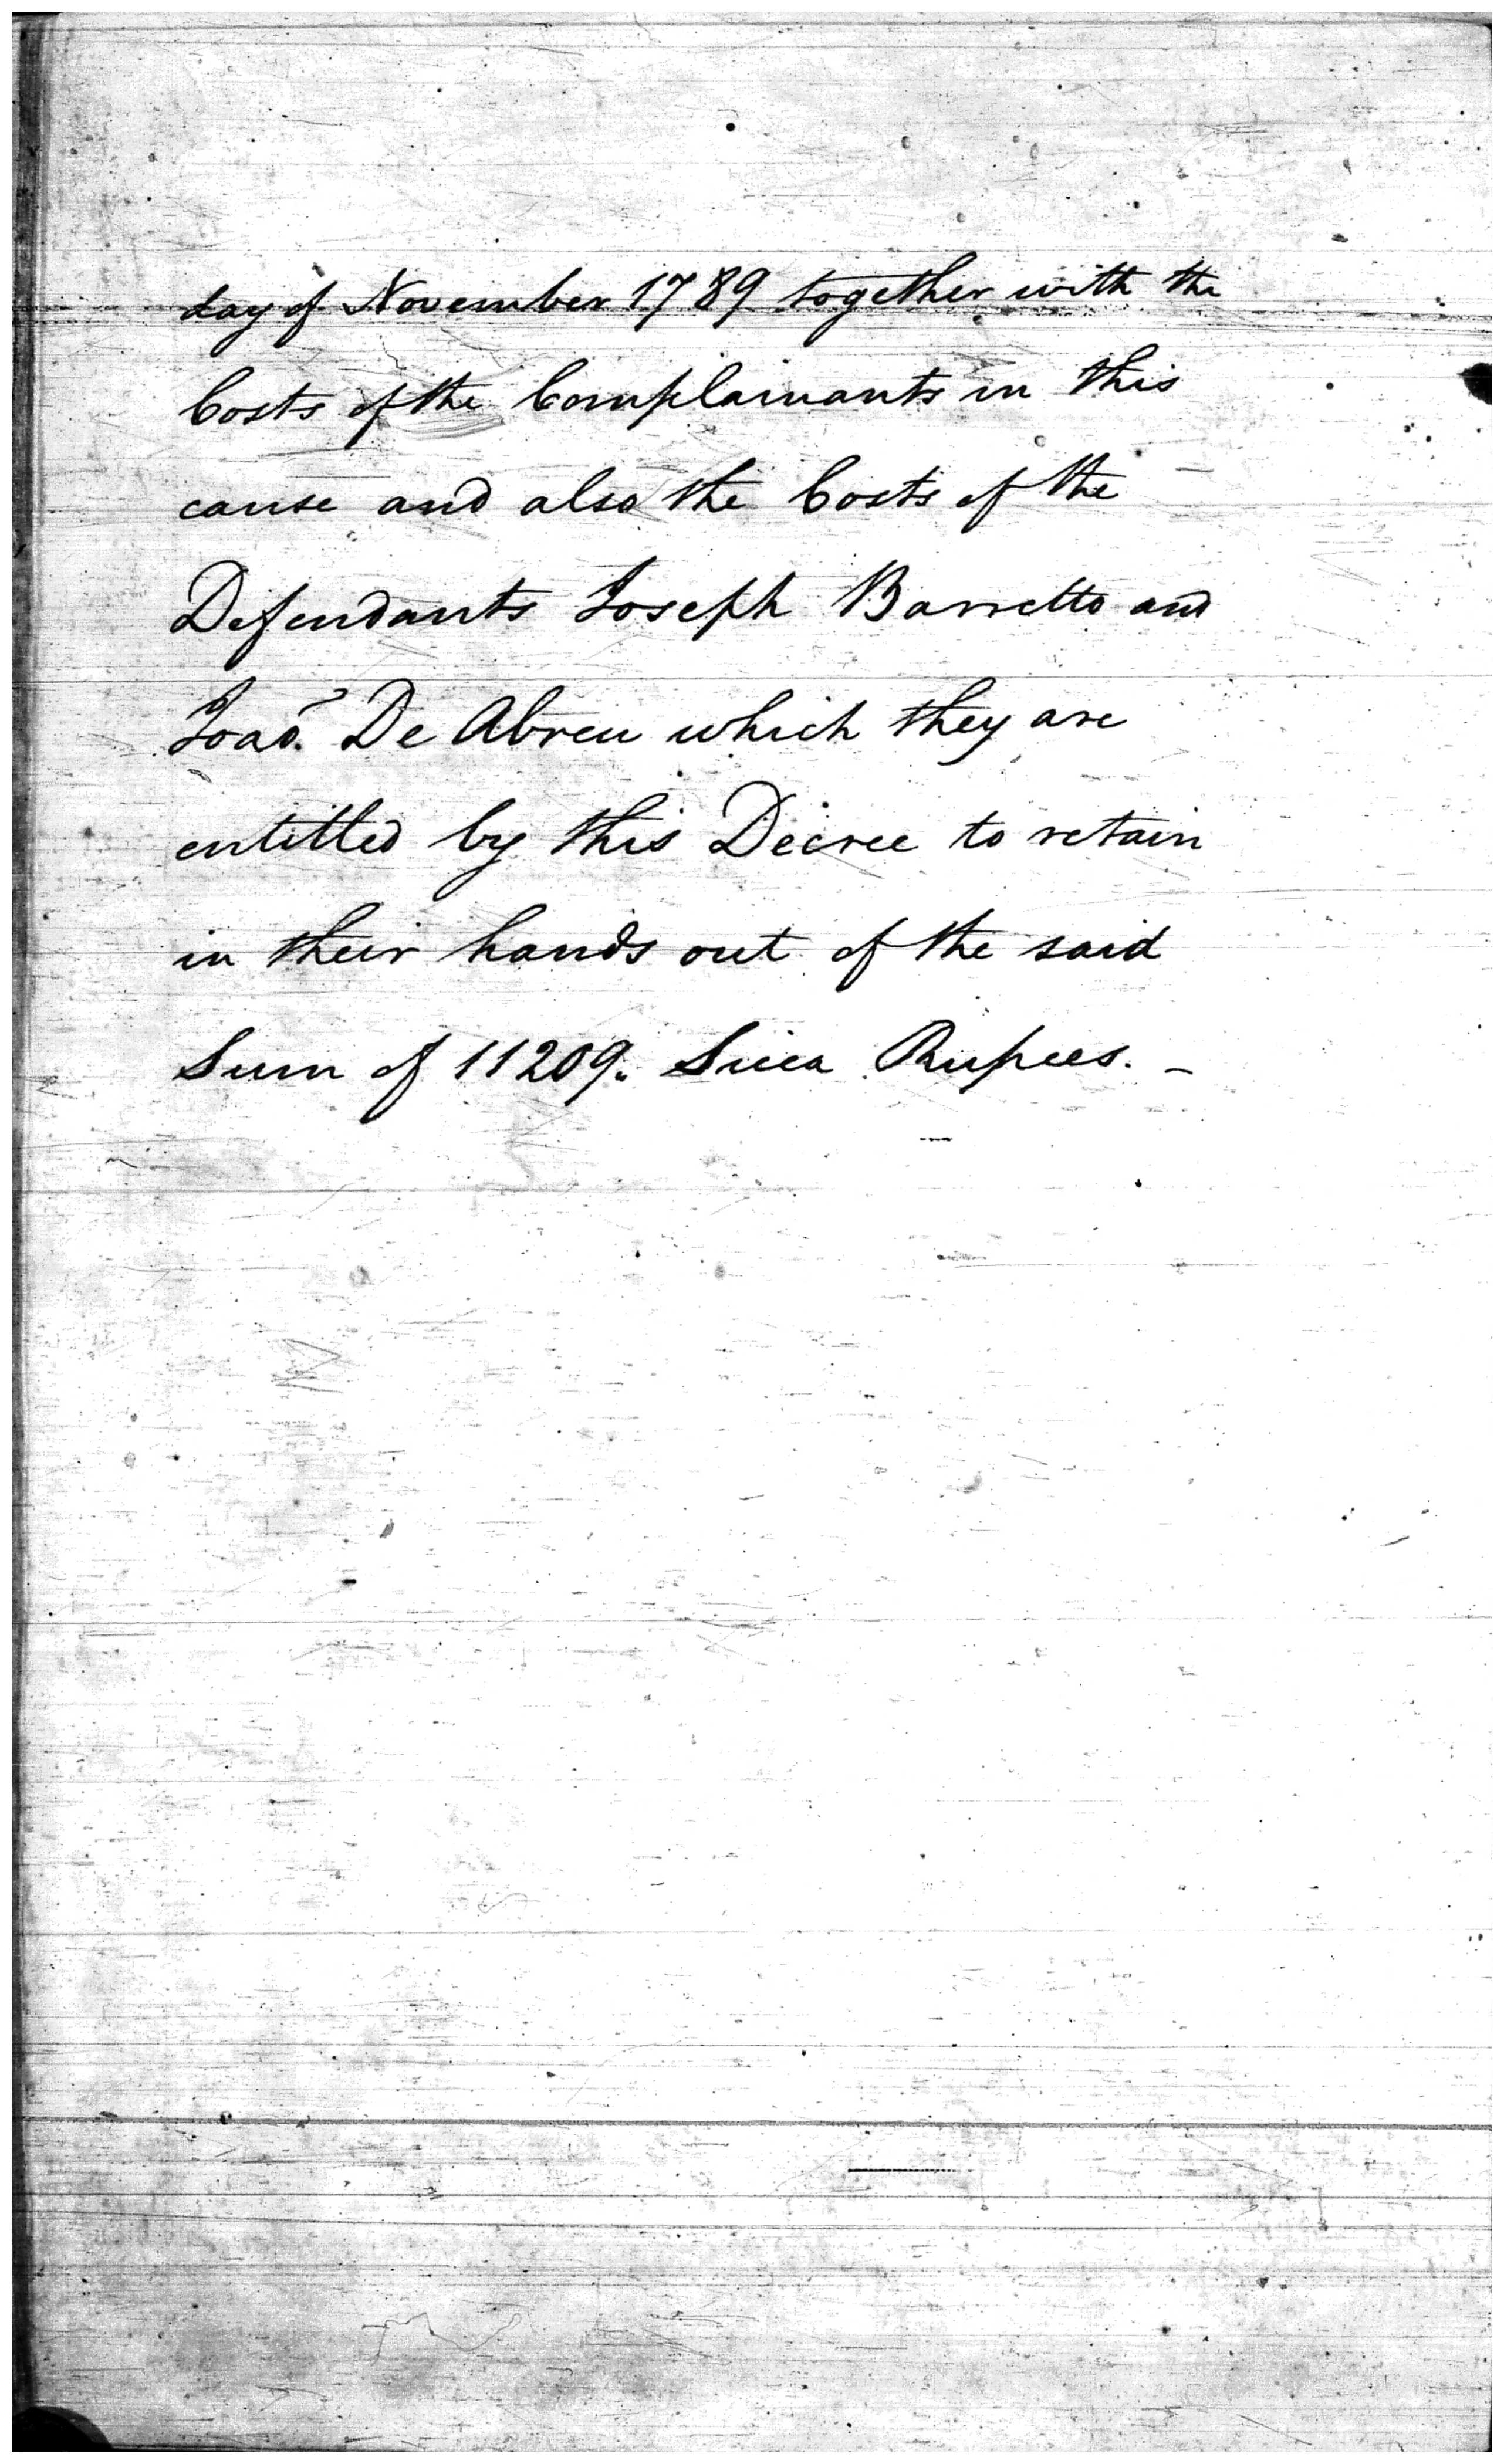 day of November 1789 together with the
Costs of the Complainants in this
cause and also the Costs of the
Defendants Joseph Barretto and
Joaõ. De Abreu which they are
entitled by this Decree to retain
in their hands out of the said
Sum of 11209. Sicca Rupees. -